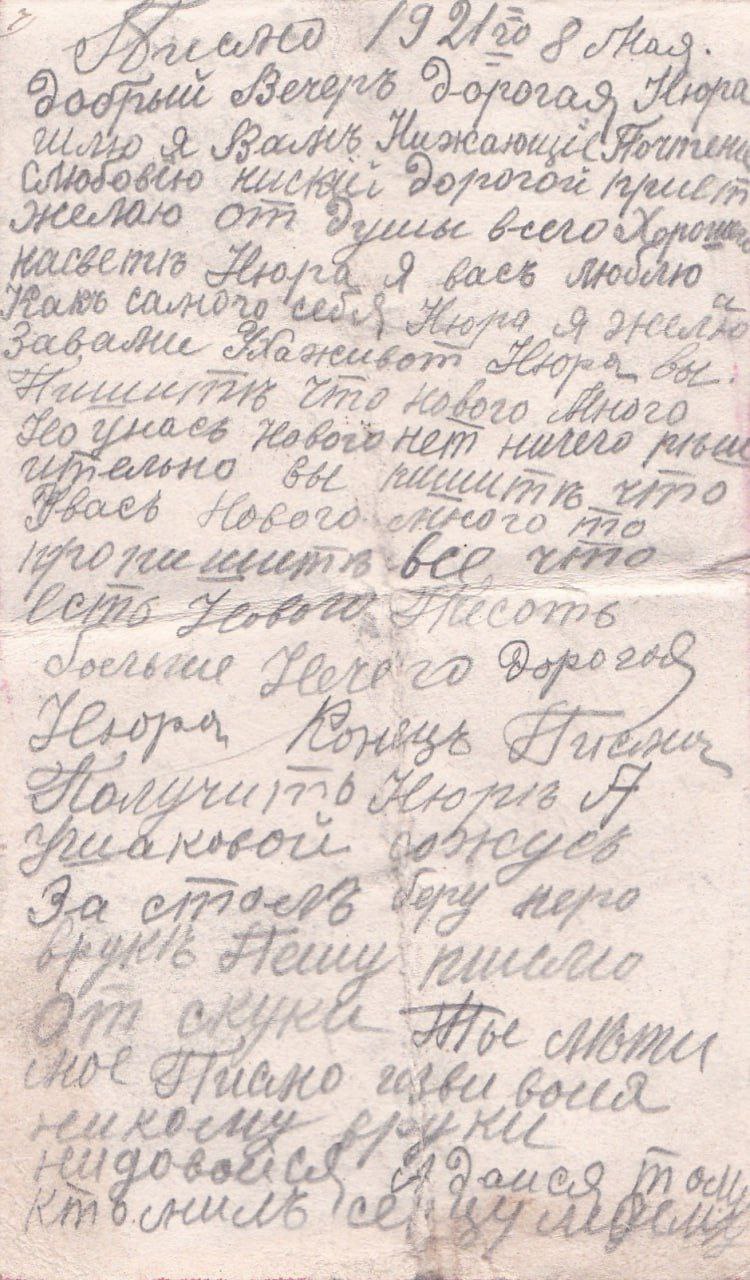 Писмо 1921 го 8 Мая.
Добрый Вечеръ Дорогая Нюра
шлю я Вамъ Нижающие Почтени
слюбовию ниский Дорогой привѣт
желаю от Души всего Хорошего
насветѣ Нюра я васъ люблю
Какъ самого себя Нюра я желаю
Завами Ухаживот Нюра вы.
Пишитѣ что нового много
Но унасъ нового нет ничего рѣш
ительно вы пишитѣ что
Увасъ Нового много то
пропишитѣ все что
есть Нового Песоть
больше Нечего Дорогая
Нюра Конецъ Писма
Получить Нюрѣ А
Ушаковой сожусь
За столъ беру перо
врукѣ Пешу письмо
от скуки Ты лѣти
мое Писмо
никому вруки
нидовойся А дайся тому
кто милъ серцу моему